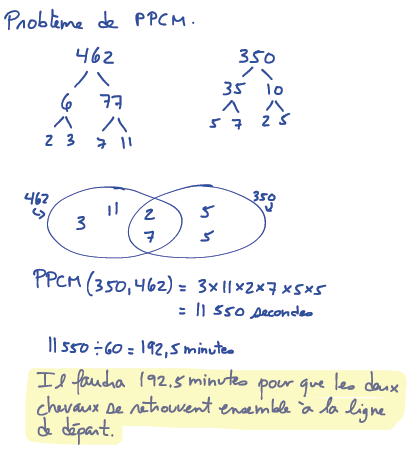 Problème de PPCM.
462 350
6 77 35 10
2 3 7 11 5 7 2 5
462 350
3 11 2 5
7 5
PPCM (350,462) = 3×11×2×7×5×5
= 11 550 secondes
11 550 ÷ 60 = 192,5 minutes
Il faudra 192,5 minutes pour que les deux
chevaux se retrouvent ensemble à la ligne
de départ.